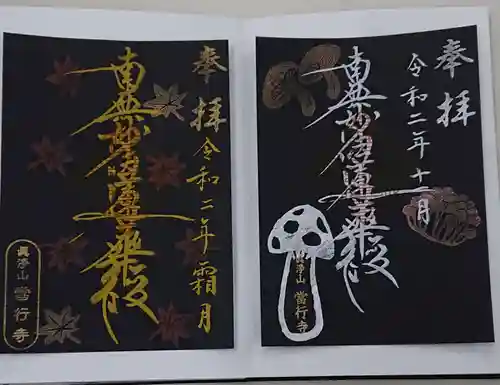 奉拝
令和二年十一月
南無妙法蓮華経
眞浄山
當行寺
奉拝
令和二年霜月
南無妙法蓮華経
眞浄山
當行寺